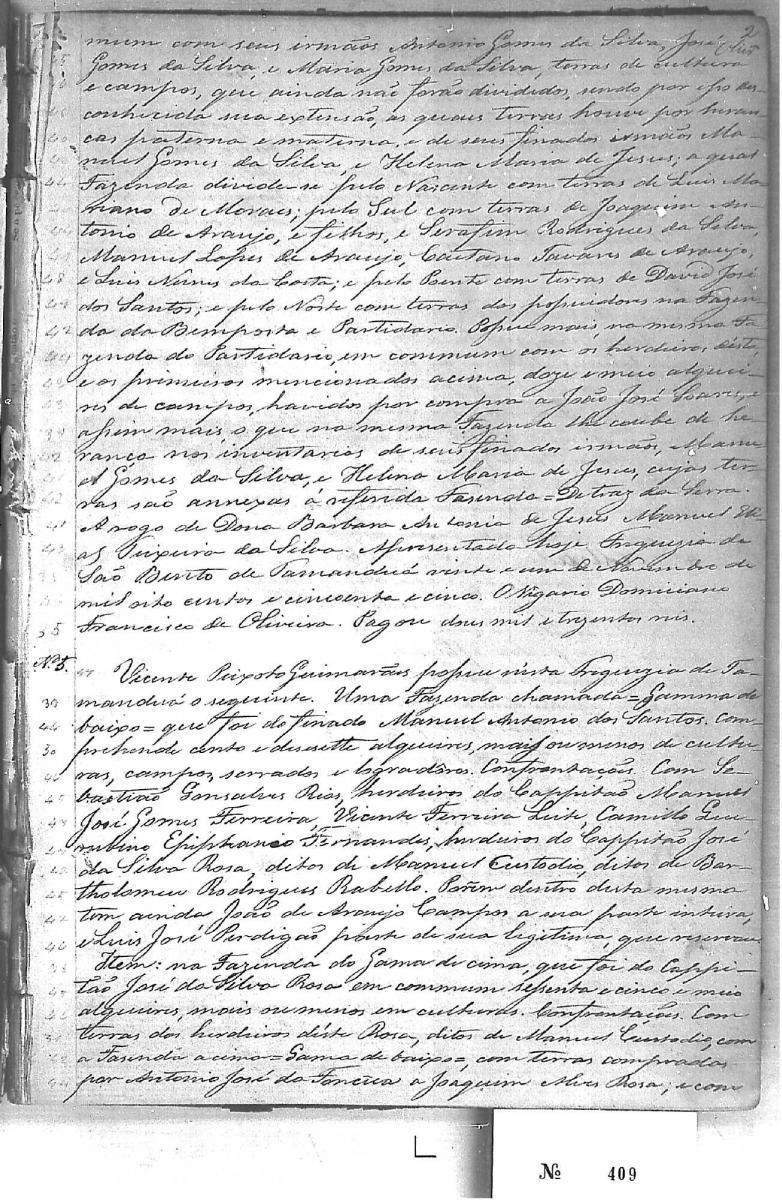 2
mum com seus irmãos Antonio Gomes da Silva, José
Gomes da Silva, e Maria Gomes da Silva, terras de cultura
e campos, que ainda não forão divididos, sendo por isso des-
conhecida sua extensão, as quaes terras houve por heran-
ças paterna e materna, e de seus finados irmãos Ma-
noel Gomes da Silva, e Helena Maria de Jesus; a qual
Fazenda divide-se pelo Nascente com terras de Luis Ma-
riano de Moraes; pelo Sul com terras de Joaquim An-
tonio de Araujo, e filhos, e Serafim Rodrigues da Silva,
Manuel Lopes de Araujo, Caetano Tavares de Araujo,
e Luis Nunes da Costa; e pelo Poente com terras de David José
dos Santos; e pelo Norte com terras dos possuidores na Fazen-
da da Bemposta e Partidario. Possue mais, na mesma Fa-
zenda do Partidario, em commum com os herdeiros deste,
e os primeiros mencionados acima, doze e meio alquei-
res de campos, havidos por compra a João José Soares, e
assim mais o que na mesma Fazenda lhe coube de he-
rança nos inventarios de seus finados irmãos, Manu-
el Gomes da Silva, e Helena Maria de Jesus, cujas ter-
ras são annexas á referida Fazenda = Detraz da Serra.
A rogo de Dona Barbara Antonia de Jesus Manuel Eli-
as Teixeira da Silva. Apresentado hoje Freguezia de
São Bento de Tamanduá vinte e um de Novembro de
mil oito centos e cincoenta e cinco. O Vigario Domiciano
Francisco de Oliveira. Pagou dous mil e trezentos reis.
Nº 5.
Vicente Peixoto Guimarães possue nésta Freguezia de Ta-
manduá o seguinte. Uma Fazenda chamada = Gamma de
baixo = que foi do finado Manuel Antonio dos Santos. Com-
prehende cento e desesette alqueires, mais ou menos de cultu-
ras, campos, serrados e logradoros. Confrontações. Com Se-
bastião Gonsalves Rios, herdeiros do Cappitão Manuel
José Gomes Ferreira, Vicente Ferreira Leite, Camillo
Epiphanio Fernandes, herdeiros do Cappitão José
da Silva Rosa, ditos de Manuel Custodio, ditos de Bar-
tholomeu Rodrigues Rabello. Porem dentro desta mesma
tem ainda João de Araujo Campos a sua parte inteira,
e Luis José Perdigão parte de sua legitima, que reservou
Item: na Fazenda do Gama de cima, que foi do Cappi-
tão José da Silva Rosa em commum sessenta e cinco e meio
alqueires, mais ou menos em culturas. Confrontações. Com
terras dos herdeiros déste Rosa, ditos de Manuel Custodio, com
a Fasenda acima = Gama de baixo =, com terras compradas
por Antonio José da Fonceca a Joaquim Alves Rosa; e com
Nº 409